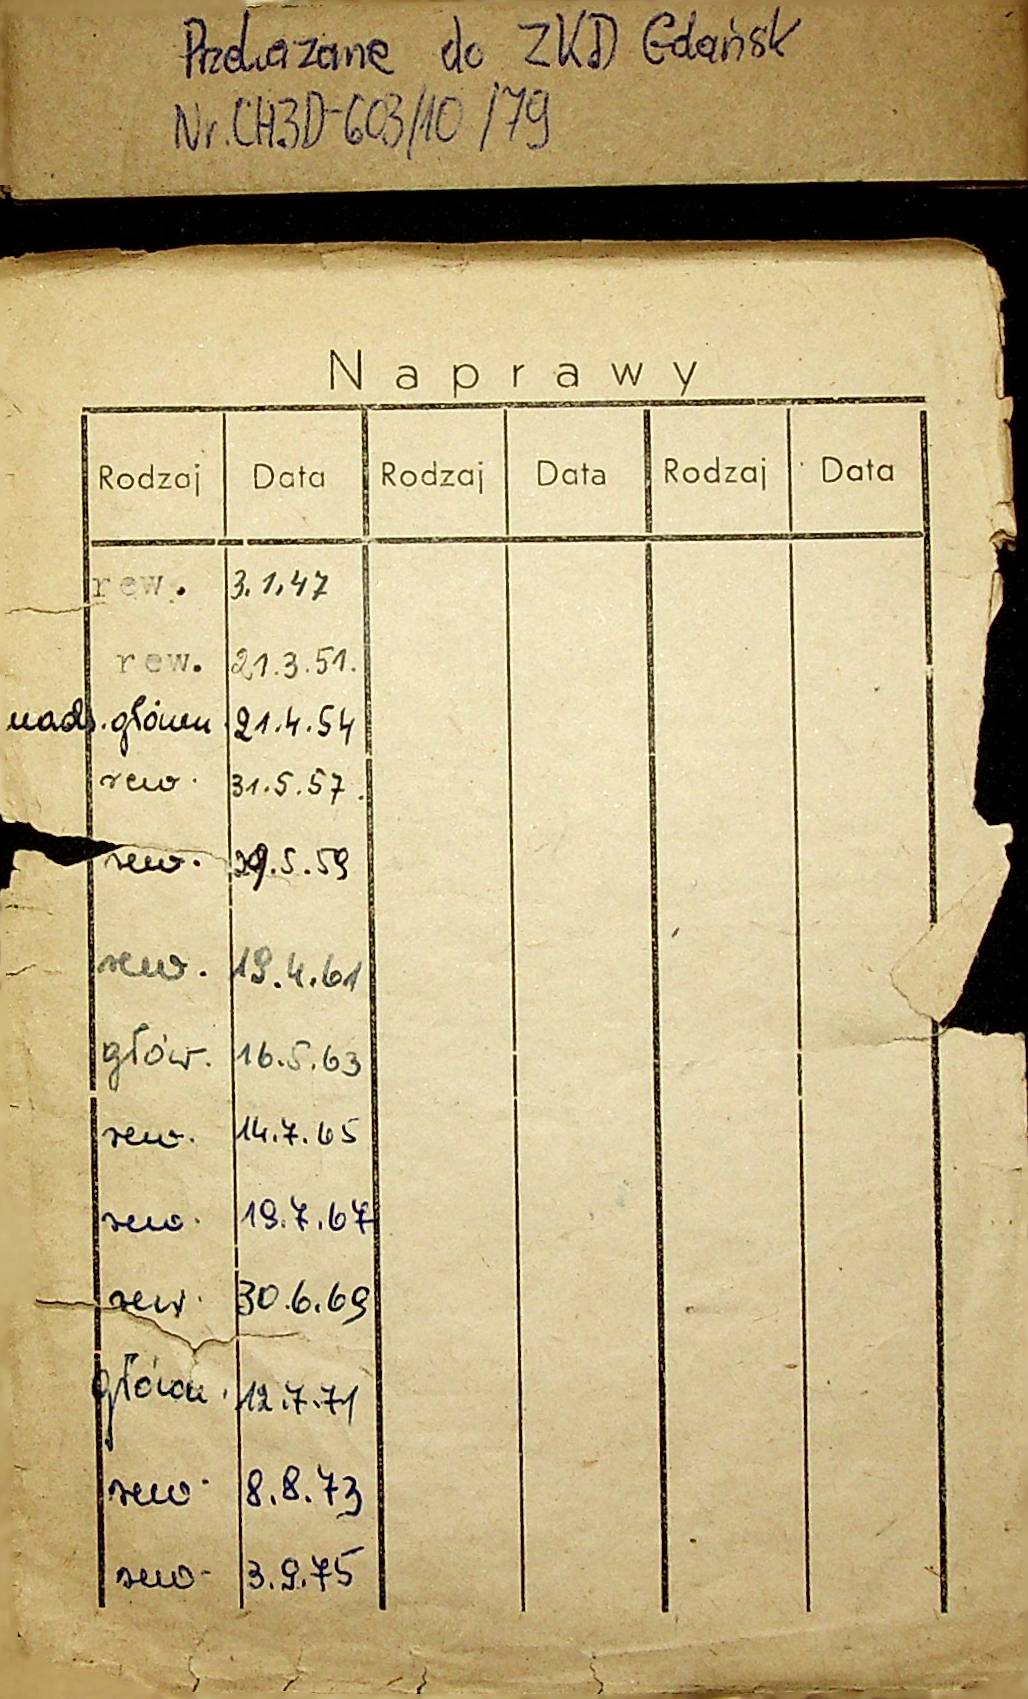 Przekazane do ZKD Gdańsk
Nr. CH3D-603/10/79
Naprawy
Rodzaj Data Rodzaj Data Rodzaj Data
rew. 3.1.47
rew. 21.3.51.
nads. główn. 21.4.54
rew. 31.5.57.
rew. 29.5.59
rew. 19.4.61
głów. 16.5.63
rew. 14.7.65
rew. 19.7.67
rew. 30.6.69
główn. 12.7.71
rew. 8.8.73
rew. 3.9.75